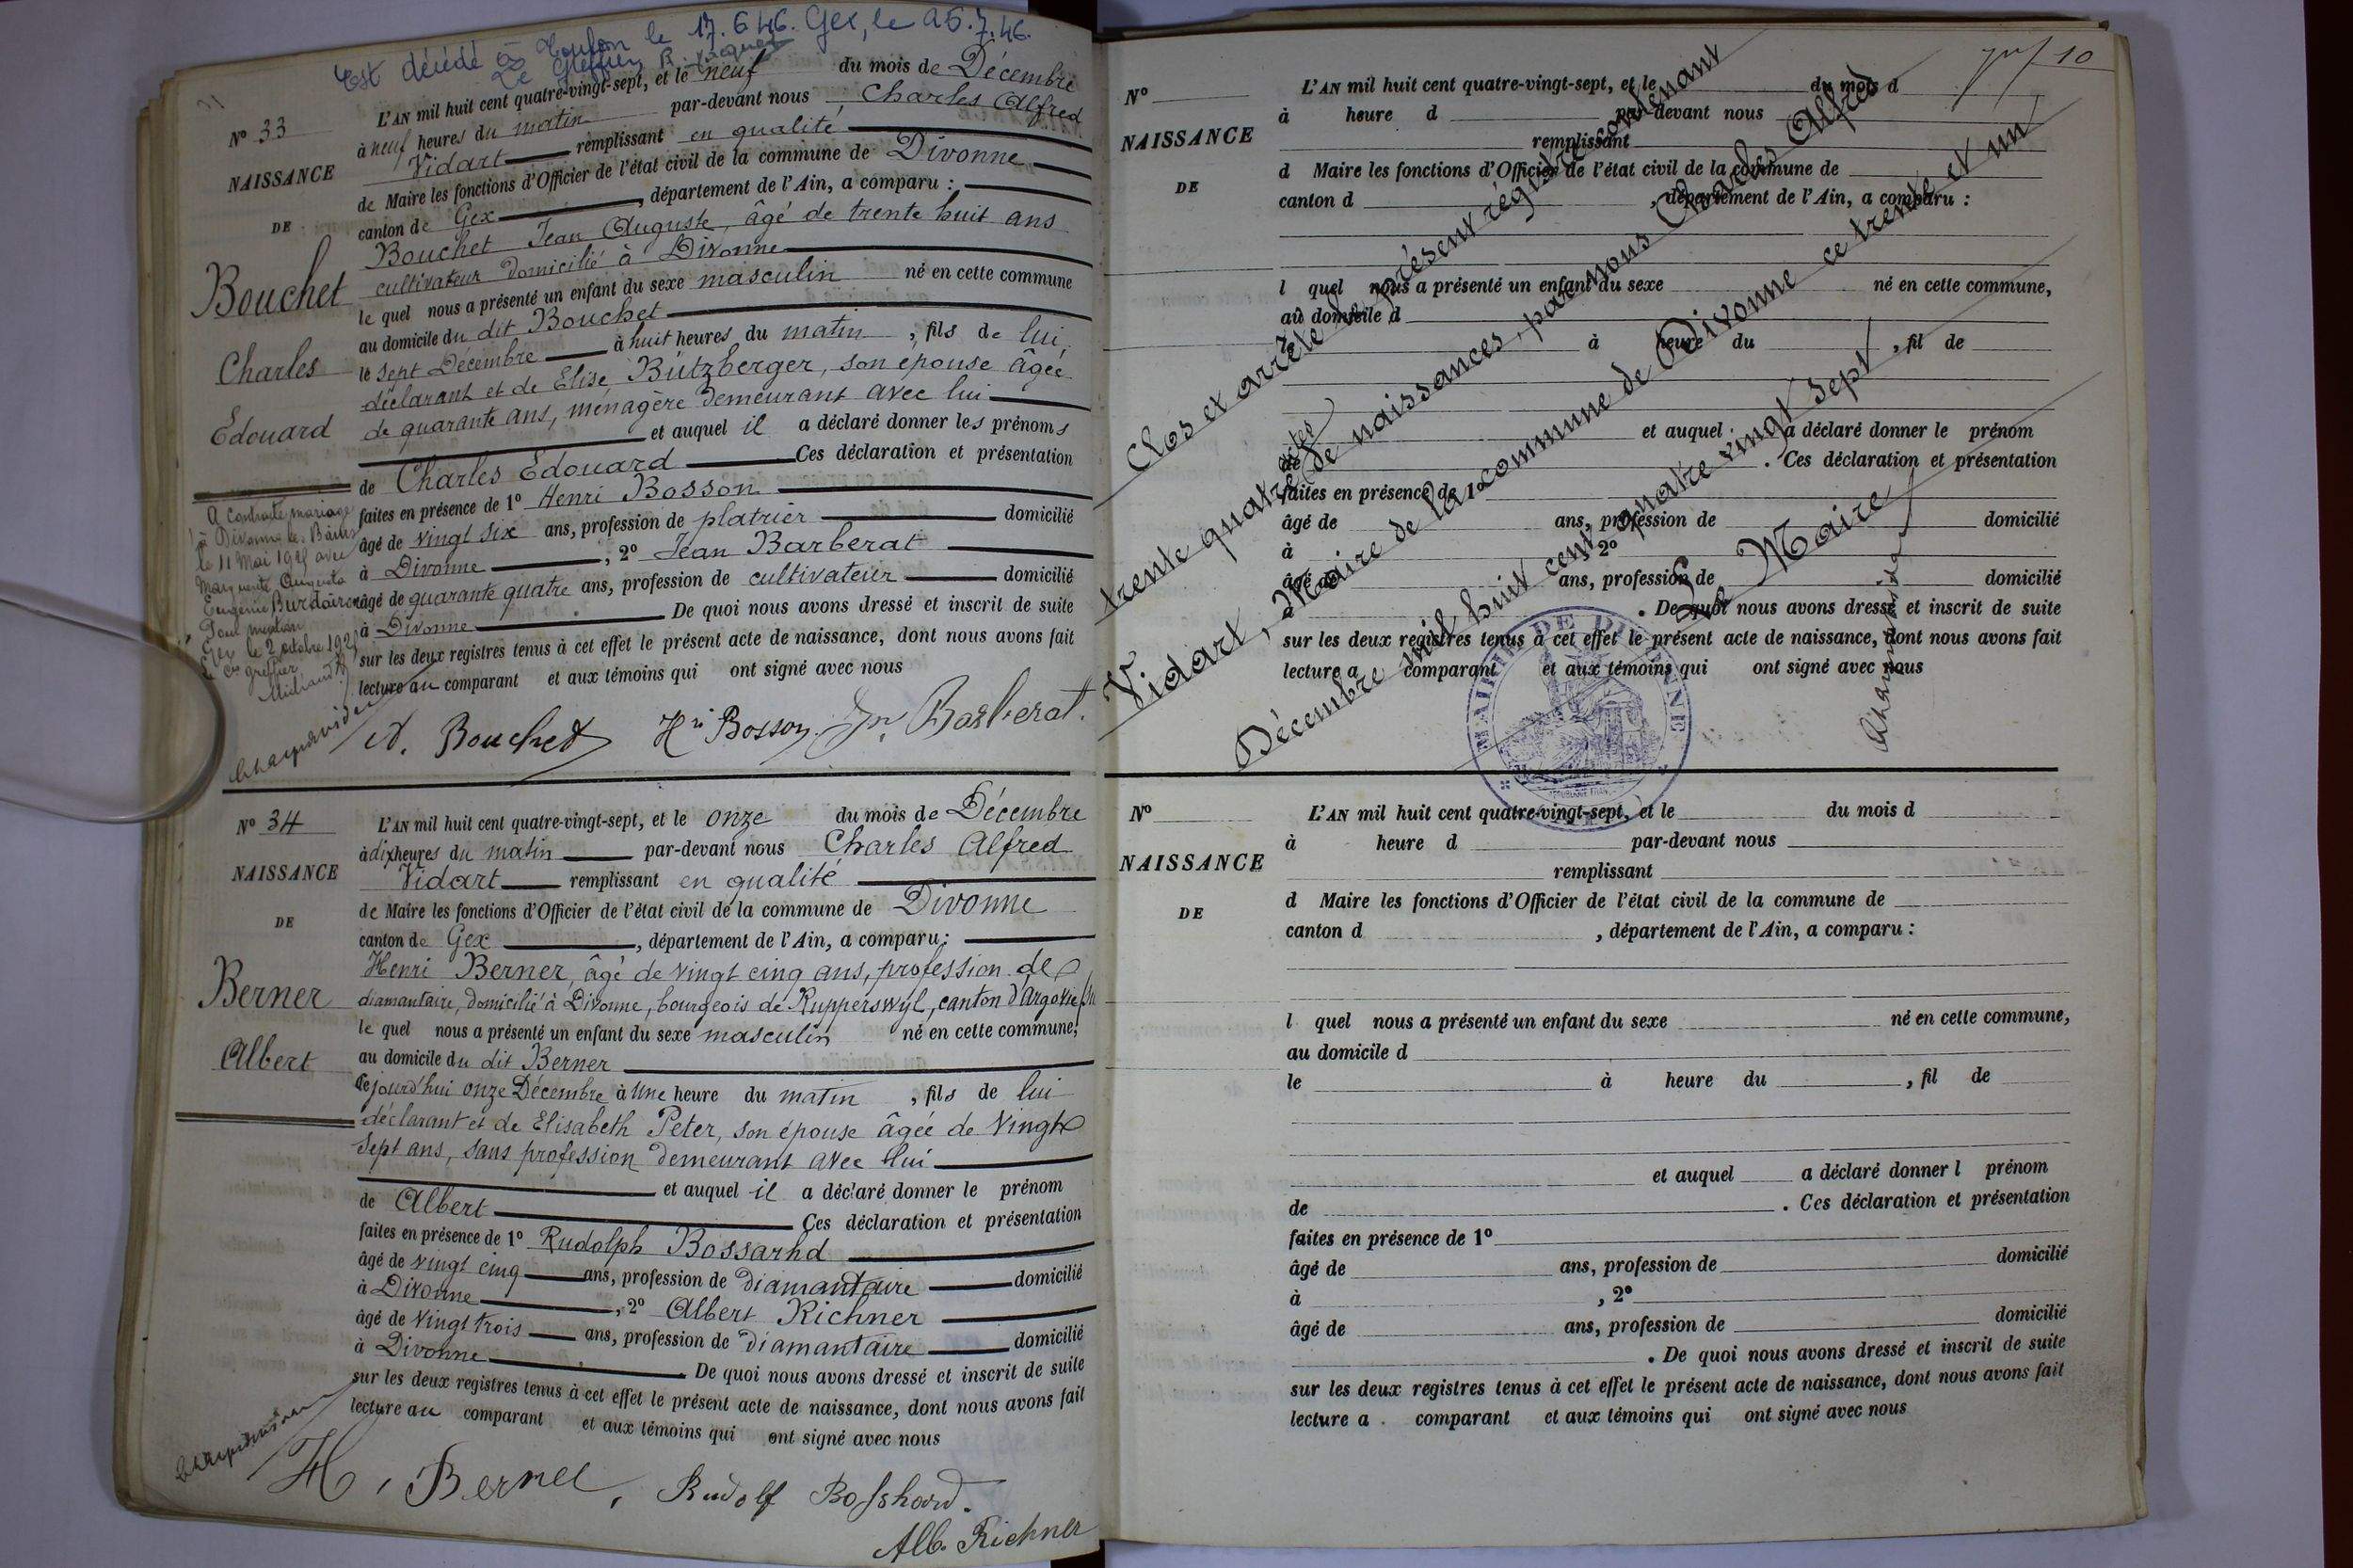 Est décédé à Toulon le 17.6.46. Gex, le 26.7.46.
Le Greffier,
N° 33
NAISSANCE
DE
Bouchet
Charles
Edouard
L'AN mil huit cent quatre-vingt-sept, et le neuf du mois de Décembre
à neuf heures du matin par-devant nous, Charles Alfred
Vidart remplissant en qualité
de Maire les fonctions d'Officier de l'état civil de la commune de Divonne
canton de Gex, département de l'Ain, a comparu :
Bouchet Jean Auguste, âgé de trente huit ans
cultivateur domicilié à Divonne
le quel nous a présenté un enfant du sexe masculin né en cette commune
au domicile du dit Bouchet
le sept Décembre à huit heures du matin, fils de lui
déclarant et de Elise Bützberger, son épouse âgée
de quarante ans, ménagère demeurant avec lui
et auquel il a déclaré donner les prénoms
de Charles Edouard Ces déclaration et présentation
faites en présence de 1° Henri Bosson
âgé de vingt six ans, profession de platrier domicilié
à Divonne, 2° Jean Barberat
âgé de quarante quatre ans, profession de cultivateur domicilié
à Divonne De quoi nous avons dressé et inscrit de suite
sur les deux registres tenus à cet effet le présent acte de naissance, dont nous avons fait
lecture au comparant et aux témoins qui ont signé avec nous
A contracté mariage
à Divonne les Bains
le 11 Mai 19 avec
Marguerite Augusta
Eugénie
Pour mention
Gex le 2 octobre 192
Le Cs greffier
Michaud
A. Bouchet Hri Bosson Jn Barberat.
N° 34
NAISSANCE
DE
Berner
Albert
L'AN mil huit cent quatre-vingt-sept, et le onze du mois de Décembre
à dix heures du matin par-devant nous Charles Alfred
Vidart remplissant en qualité
de Maire les fonctions d'Officier de l'état civil de la commune de Divonne
canton de Gex, département de l'Ain, a comparu :
Henri Berner, âgé de vingt cinq ans, profession de
diamantaire, domicilié à Divonne, bourgeois de Rupperswyl, canton d'Argovie
le quel nous a présenté un enfant du sexe masculin né en cette commune,
au domicile du dit Berner
cejourd'hui onze Décembre à une heure du matin, fils de lui
déclarant et de Elisabeth Peter, son épouse âgée de vingt
sept ans, sans profession demeurant avec lui
et auquel il a déclaré donner le prénom
de Albert Ces déclaration et présentation
faites en présence de 1° Rudolph Bossarhd
âgé de vingt cinq ans, profession de diamantaire domicilié
à Divonne, 2° Albert Richner
âgé de vingt trois ans, profession de diamantaire domicilié
à Divonne. De quoi nous avons dressé et inscrit de suite
sur les deux registres tenus à cet effet le présent acte de naissance, dont nous avons fait
lecture au comparant et aux témoins qui ont signé avec nous
H. Berner, Rudolf Bosshard.
Alb. Richner
10
N°
NAISSANCE
DE
L'AN mil huit cent quatre-vingt-sept, et le du mois d
à heure d par-devant nous
remplissant
d Maire les fonctions d'Officier de l'état civil de la commune de
canton d , département de l'Ain, a comparu :
l quel nous a présenté un enfant du sexe né en cette commune,
au domicile d
le à heure du , fil de
et auquel a déclaré donner le prénom
de . Ces déclaration et présentation
faites en présence de 1°
âgé de ans, profession de domicilié
à , 2°
âgé de ans, profession de domicilié
à . De quoi nous avons dressé et inscrit de suite
sur les deux registres tenus à cet effet le présent acte de naissance, dont nous avons fait
lecture a comparant et aux témoins qui ont signé avec nous
Clos et arrêté le présent régistre contenant
trente quatre actes de naissances, par nous Charles Alfred
Vidart, Maire de la commune de Divonne ce trente et un
Décembre mil huit cent quatre vingt sept
Le Maire
MAIRIE DE DIVONNE
N°
NAISSANCE
DE
L'AN mil huit cent quatre-vingt-sept, et le du mois d
à heure d par-devant nous
remplissant
d Maire les fonctions d'Officier de l'état civil de la commune de
canton d , département de l'Ain, a comparu :
l quel nous a présenté un enfant du sexe né en cette commune,
au domicile d
le à heure du , fil de
et auquel a déclaré donner l prénom
de . Ces déclaration et présentation
faites en présence de 1°
âgé de ans, profession de domicilié
à , 2°
âgé de ans, profession de domicilié
. De quoi nous avons dressé et inscrit de suite
sur les deux registres tenus à cet effet le présent acte de naissance, dont nous avons fait
lecture a comparant et aux témoins qui ont signé avec nous